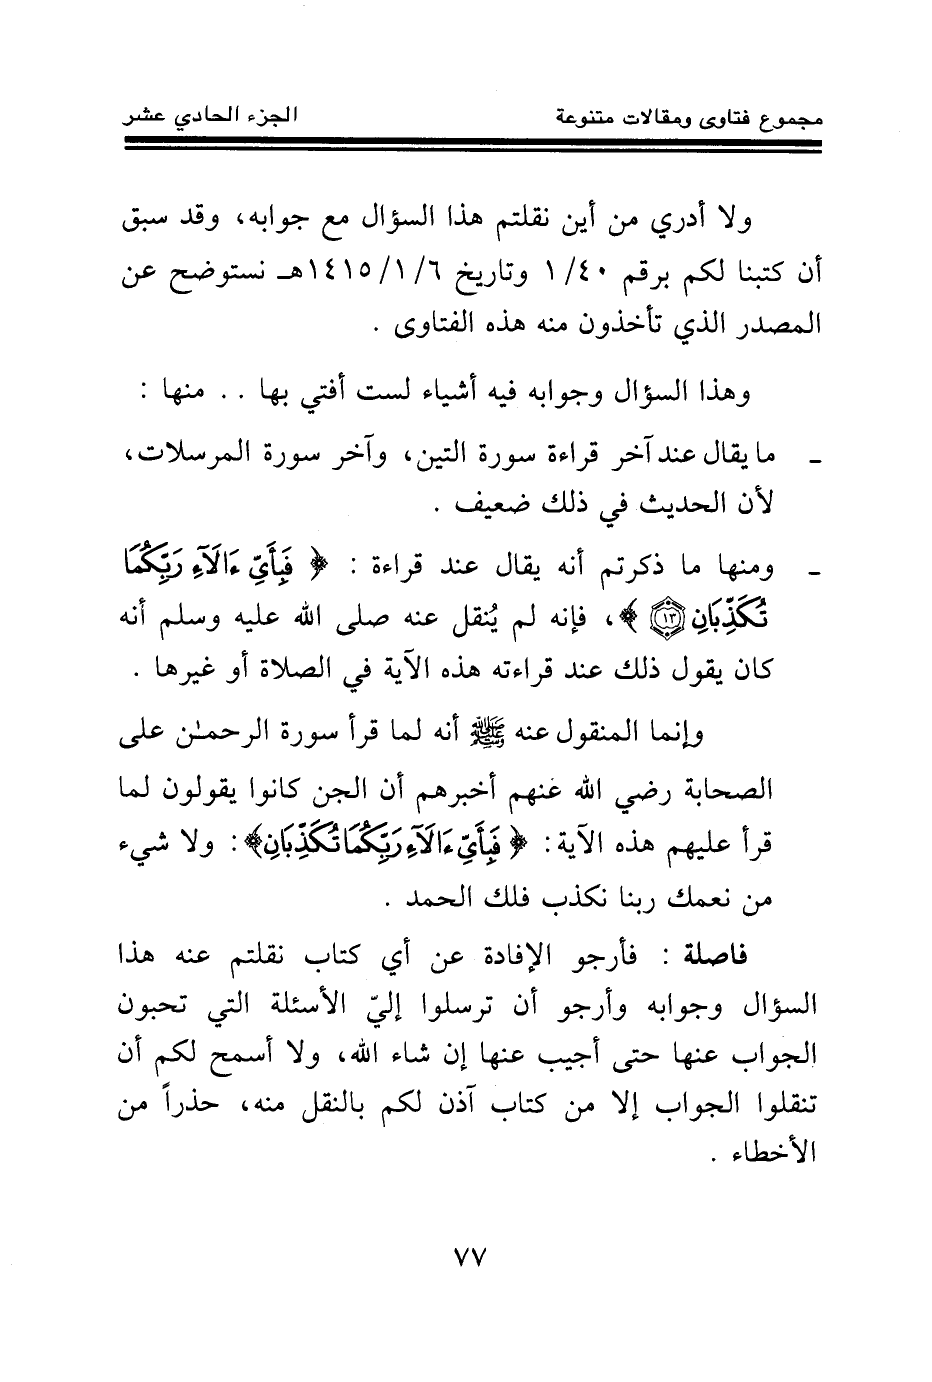 مجموع فتاوى ومقالات متنوعة الجزء الحادي عشر
ولا أدري من أين نقلتم هذا السؤال مع جوابه، وقد سبق
أن كتبنا لكم برقم ١/٤٠ وتاريخ ١٤١٥/١/٦هـ نستوضح عن
المصدر الذي تأخذون منه هذه الفتاوى .
وهذا السؤال وجوابه فيه أشياء لست أفتي بها . . منها :
ـ ما يقال عند آخر قراءة سورة التين، وآخر سورة المرسلات،
لأن الحديث في ذلك ضعيف .
ـ ومنها ما ذكرتم أنه يقال عند قراءة : ﴿ فَبِأَيِّ ءَالَآءِ رَبِّكُمَا
تُكَذِّبَانِ ١٣ ﴾، فإنه لم يُنقل عنه صلى الله عليه وسلم أنه
كان يقول ذلك عند قراءته هذه الآية في الصلاة أو غيرها .
وإنما المنقول عنه ﷺ أنه لما قرأ سورة الرحمـٰن على
الصحابة رضي الله عنهم أخبرهم أن الجن كانوا يقولون لما
قرأ عليهم هذه الآية: ﴿ فَبِأَيِّ ءَالَآءِ رَبِّكُمَا تُكَذِّبَانِ﴾: ولا شيء
من نعمك ربنا نكذب فلك الحمد .
فاصلة : فأرجو الإفادة عن أي كتاب نقلتم عنه هذا
السؤال وجوابه وأرجو أن ترسلوا إليّ الأسئلة التي تحبون
الجواب عنها حتى أجيب عنها إن شاء الله، ولا أسمح لكم أن
تنقلوا الجواب إلا من كتاب آذن لكم بالنقل منه، حذراً من
الأخطاء .
٧٧